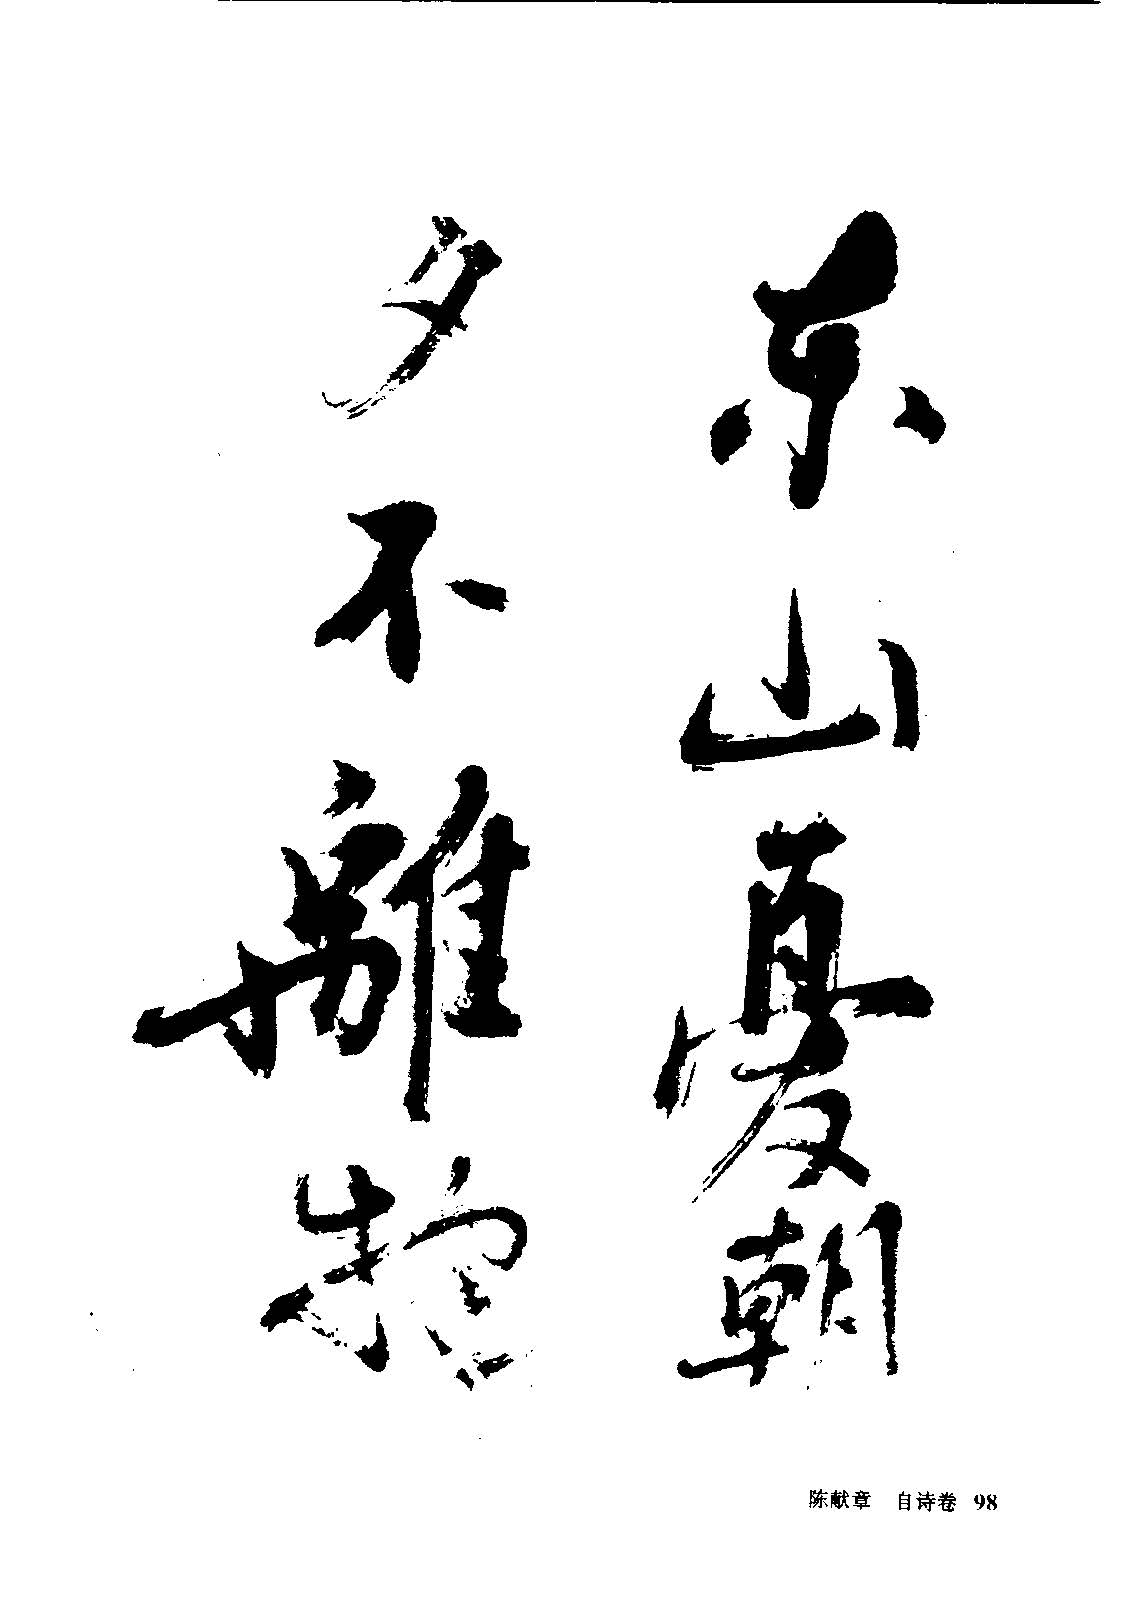 东山憂朝
夕不離
陈献章 自诗卷 98